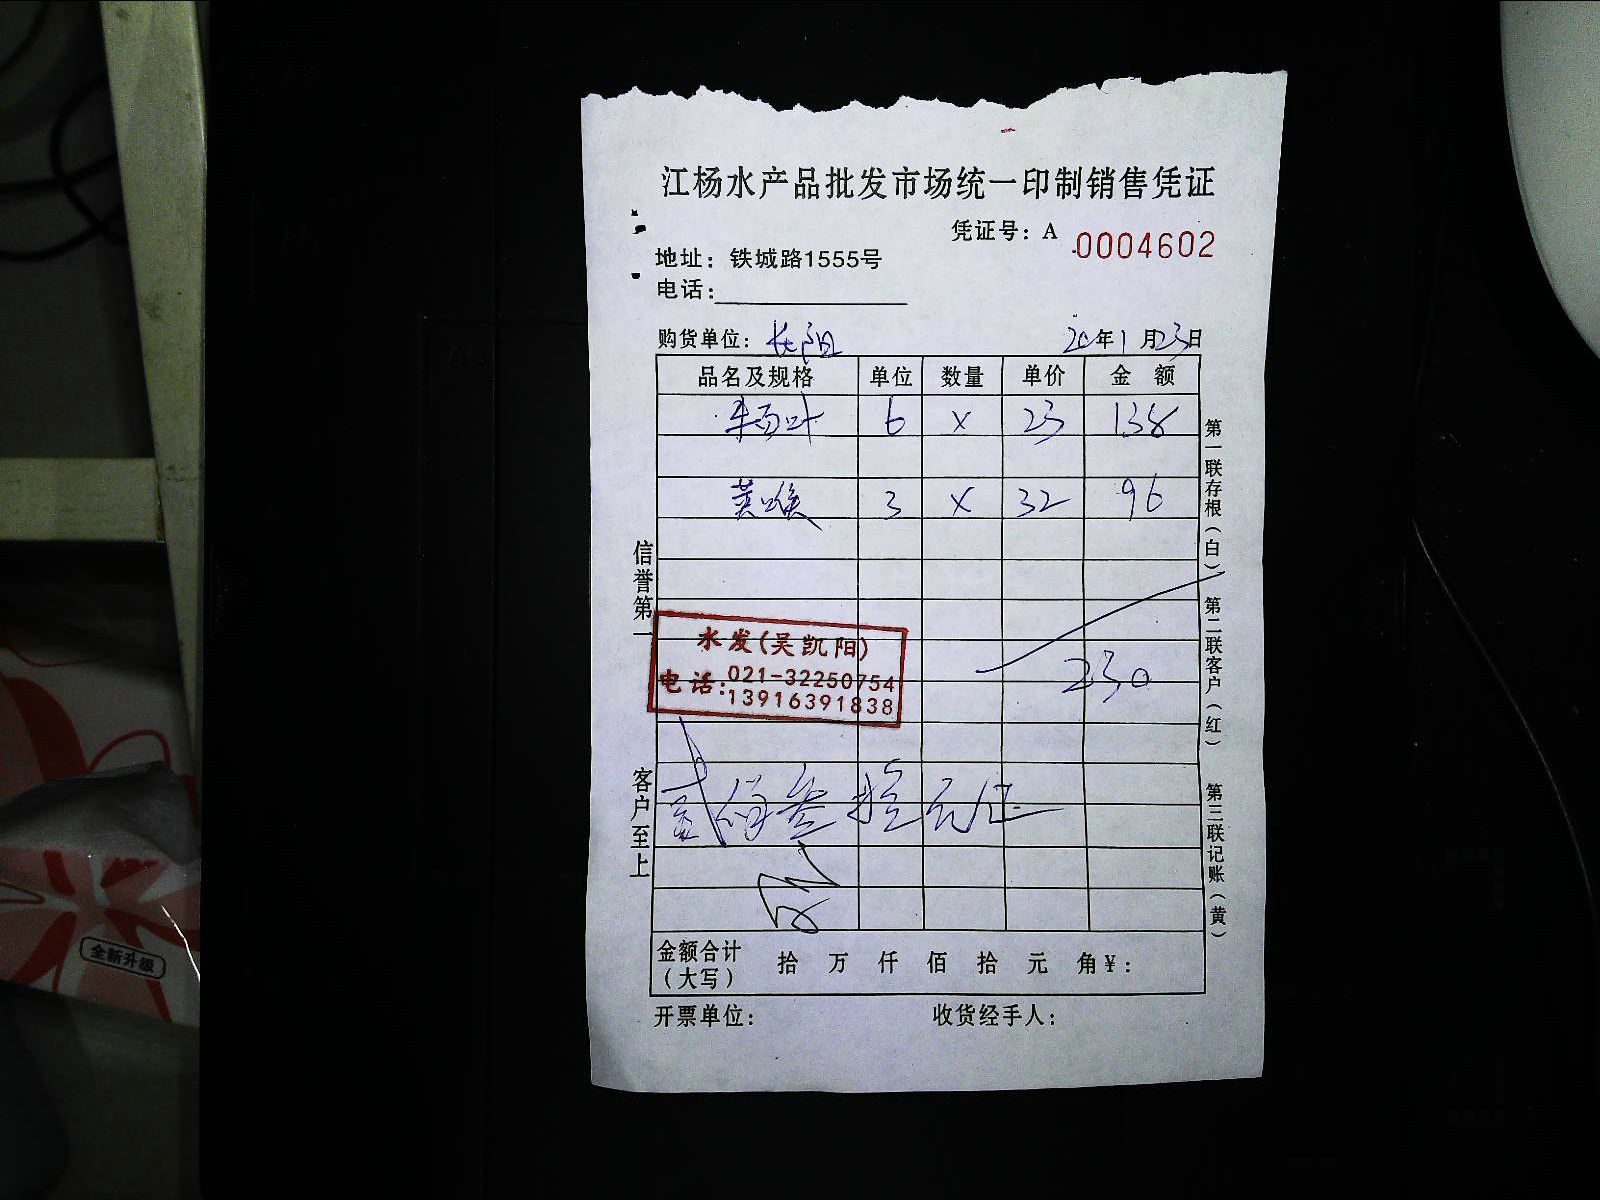 江杨水产品批发市场统一印制销售凭证
凭证号：A 0004602
地址：铁城路1555号
电话：
购货单位：长阳 20年1月23日
品名及规格 单位 数量 单价 金 额
牛百叶 6 X 23 138
黄喉 3 X 32 96
230
水发(吴凯阳)
电话:021-32250754
13916391838
贰佰叁拾元正
金额合计（大写） 拾 万 仟 佰 拾 元 角￥：
开票单位： 收货经手人：
信誉第一 客户至上
第一联存根（白） 第二联客户（红） 第三联记账（黄）
全新升级